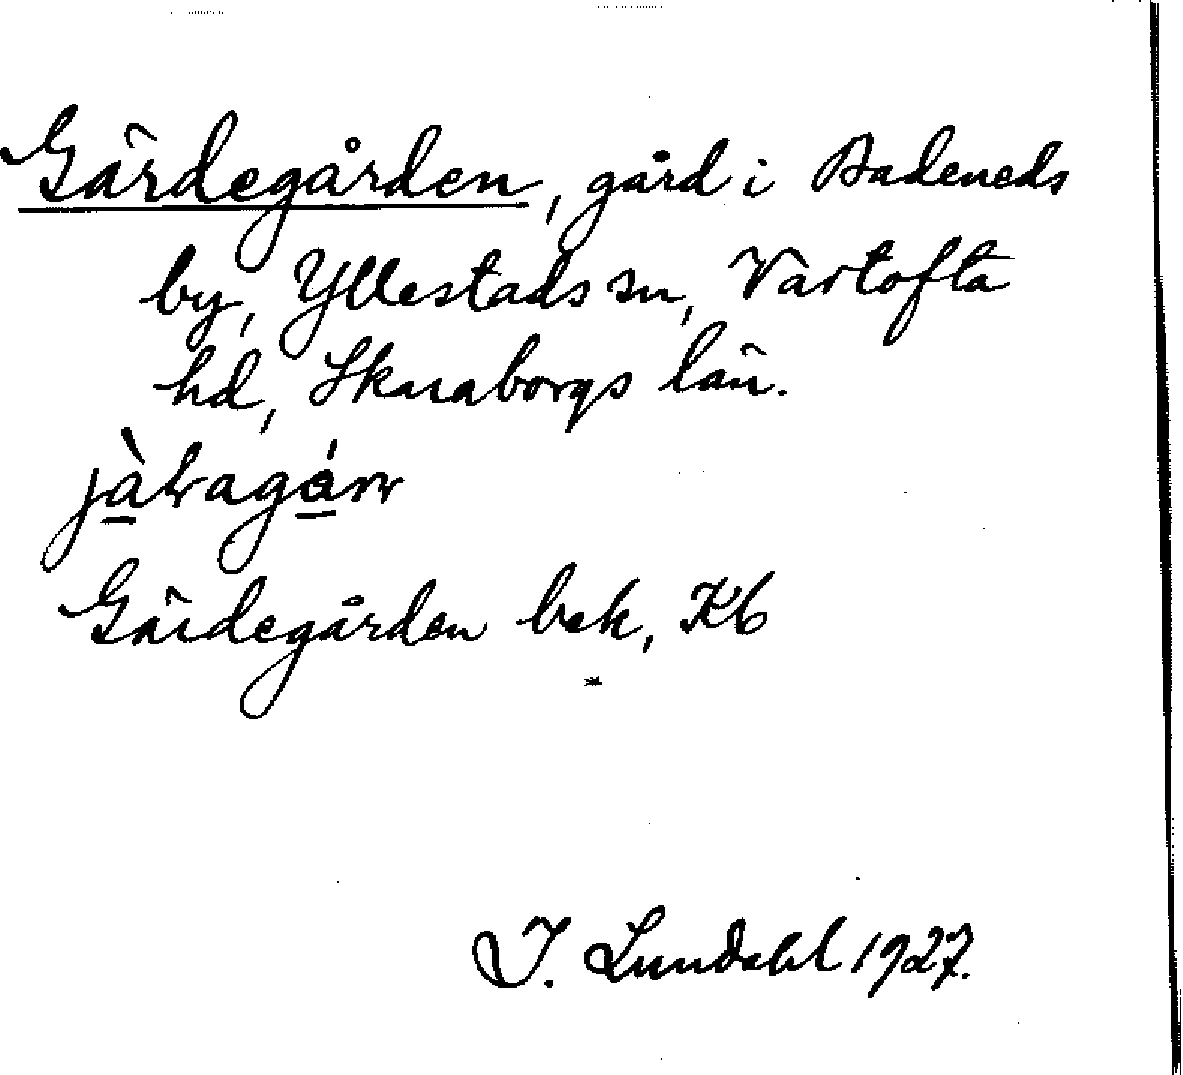 Gärdegården, gård i Badeneds
by, Yllestads sn, Vartofta
hd, Skaraborgs län.
Gärdegården bek, Kb
I. Lundahl 1927.